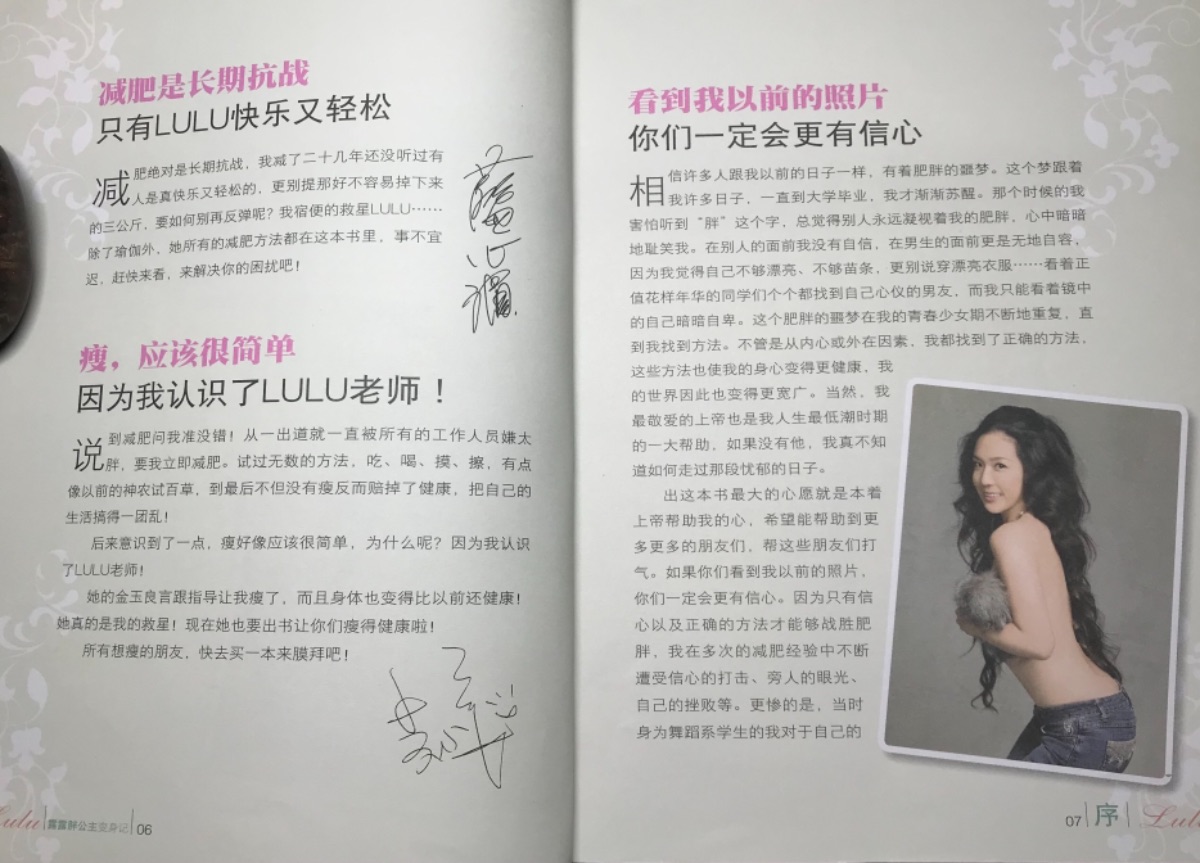 减肥是长期抗战
只有LULU快乐又轻松
减肥绝对是长期抗战，我减了二十几年还没听过有
人是真快乐又轻松的，更别提那好不容易掉下来
的三公斤，要如何别再反弹呢？我宿便的救星LULU……
除了瑜伽外，她所有的减肥方法都在这本书里，事不宜
迟，赶快来看，来解决你的困扰吧！
瘦，应该很简单
因为我认识了LULU老师！
说到减肥问我准没错！从一出道就一直被所有的工作人员嫌太
胖，要我立即减肥。试过无数的方法，吃、喝、摸、擦，有点
像以前的神农试百草，到最后不但没有瘦反而赔掉了健康，把自己的
生活搞得一团乱！
后来意识到了一点，瘦好像应该很简单，为什么呢？因为我认识
了LULU老师！
她的金玉良言跟指导让我瘦了，而且身体也变得比以前还健康！
她真的是我的救星！现在她也要出书让你们瘦得健康啦！
所有想瘦的朋友，快去买一本来膜拜吧！
Lulu 露露胖公主变身记 06
看到我以前的照片
你们一定会更有信心
相信许多人跟我以前的日子一样，有着肥胖的噩梦。这个梦跟着
我许多日子，一直到大学毕业，我才渐渐苏醒。那个时候的我
害怕听到“胖”这个字，总觉得别人永远凝视着我的肥胖，心中暗暗
地耻笑我。在别人的面前我没有自信，在男生的面前更是无地自容，
因为我觉得自己不够漂亮、不够苗条，更别说穿漂亮衣服……看着正
值花样年华的同学们个个都找到自己心仪的男友，而我只能看着镜中
的自己暗暗自卑。这个肥胖的噩梦在我的青春少女期不断地重复，直
到我找到方法。不管是从内心或外在因素，我都找到了正确的方法，
这些方法也使我的身心变得更健康，我
的世界因此也变得更宽广。当然，我
最敬爱的上帝也是我人生最低潮时期
的一大帮助，如果没有他，我真不知
道如何走过那段忧郁的日子。
出这本书最大的心愿就是本着
上帝帮助我的心，希望能帮助到更
多更多的朋友们，帮这些朋友们打
气。如果你们看到我以前的照片，
你们一定会更有信心。因为只有信
心以及正确的方法才能够战胜肥
胖，我在多次的减肥经验中不断
遭受信心的打击、旁人的眼光、
自己的挫败等。更惨的是，当时
身为舞蹈系学生的我对于自己的
07 序 Lulu